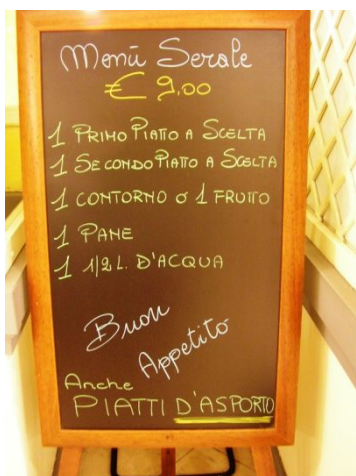 Menú Serale
€ 9.00
1 PRIMO PIATTO A SCELTA
1 SECONDO PIATTO A SCELTA
1 CONTORNO O 1 FRUTTO
1 PANE
1 1/2 L. D'ACQUA
Buon
Appetito
Anche
PIATTI D'ASPORTO